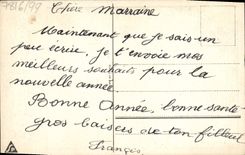 7816/99
Chère Marraine
Maintenant que je sais un
peu ecrire, je t'envoie mes
meilleurs souhaits pour la
nouvelle année
Bonne Année, bonne santé
gros baisers de ton filleul
François